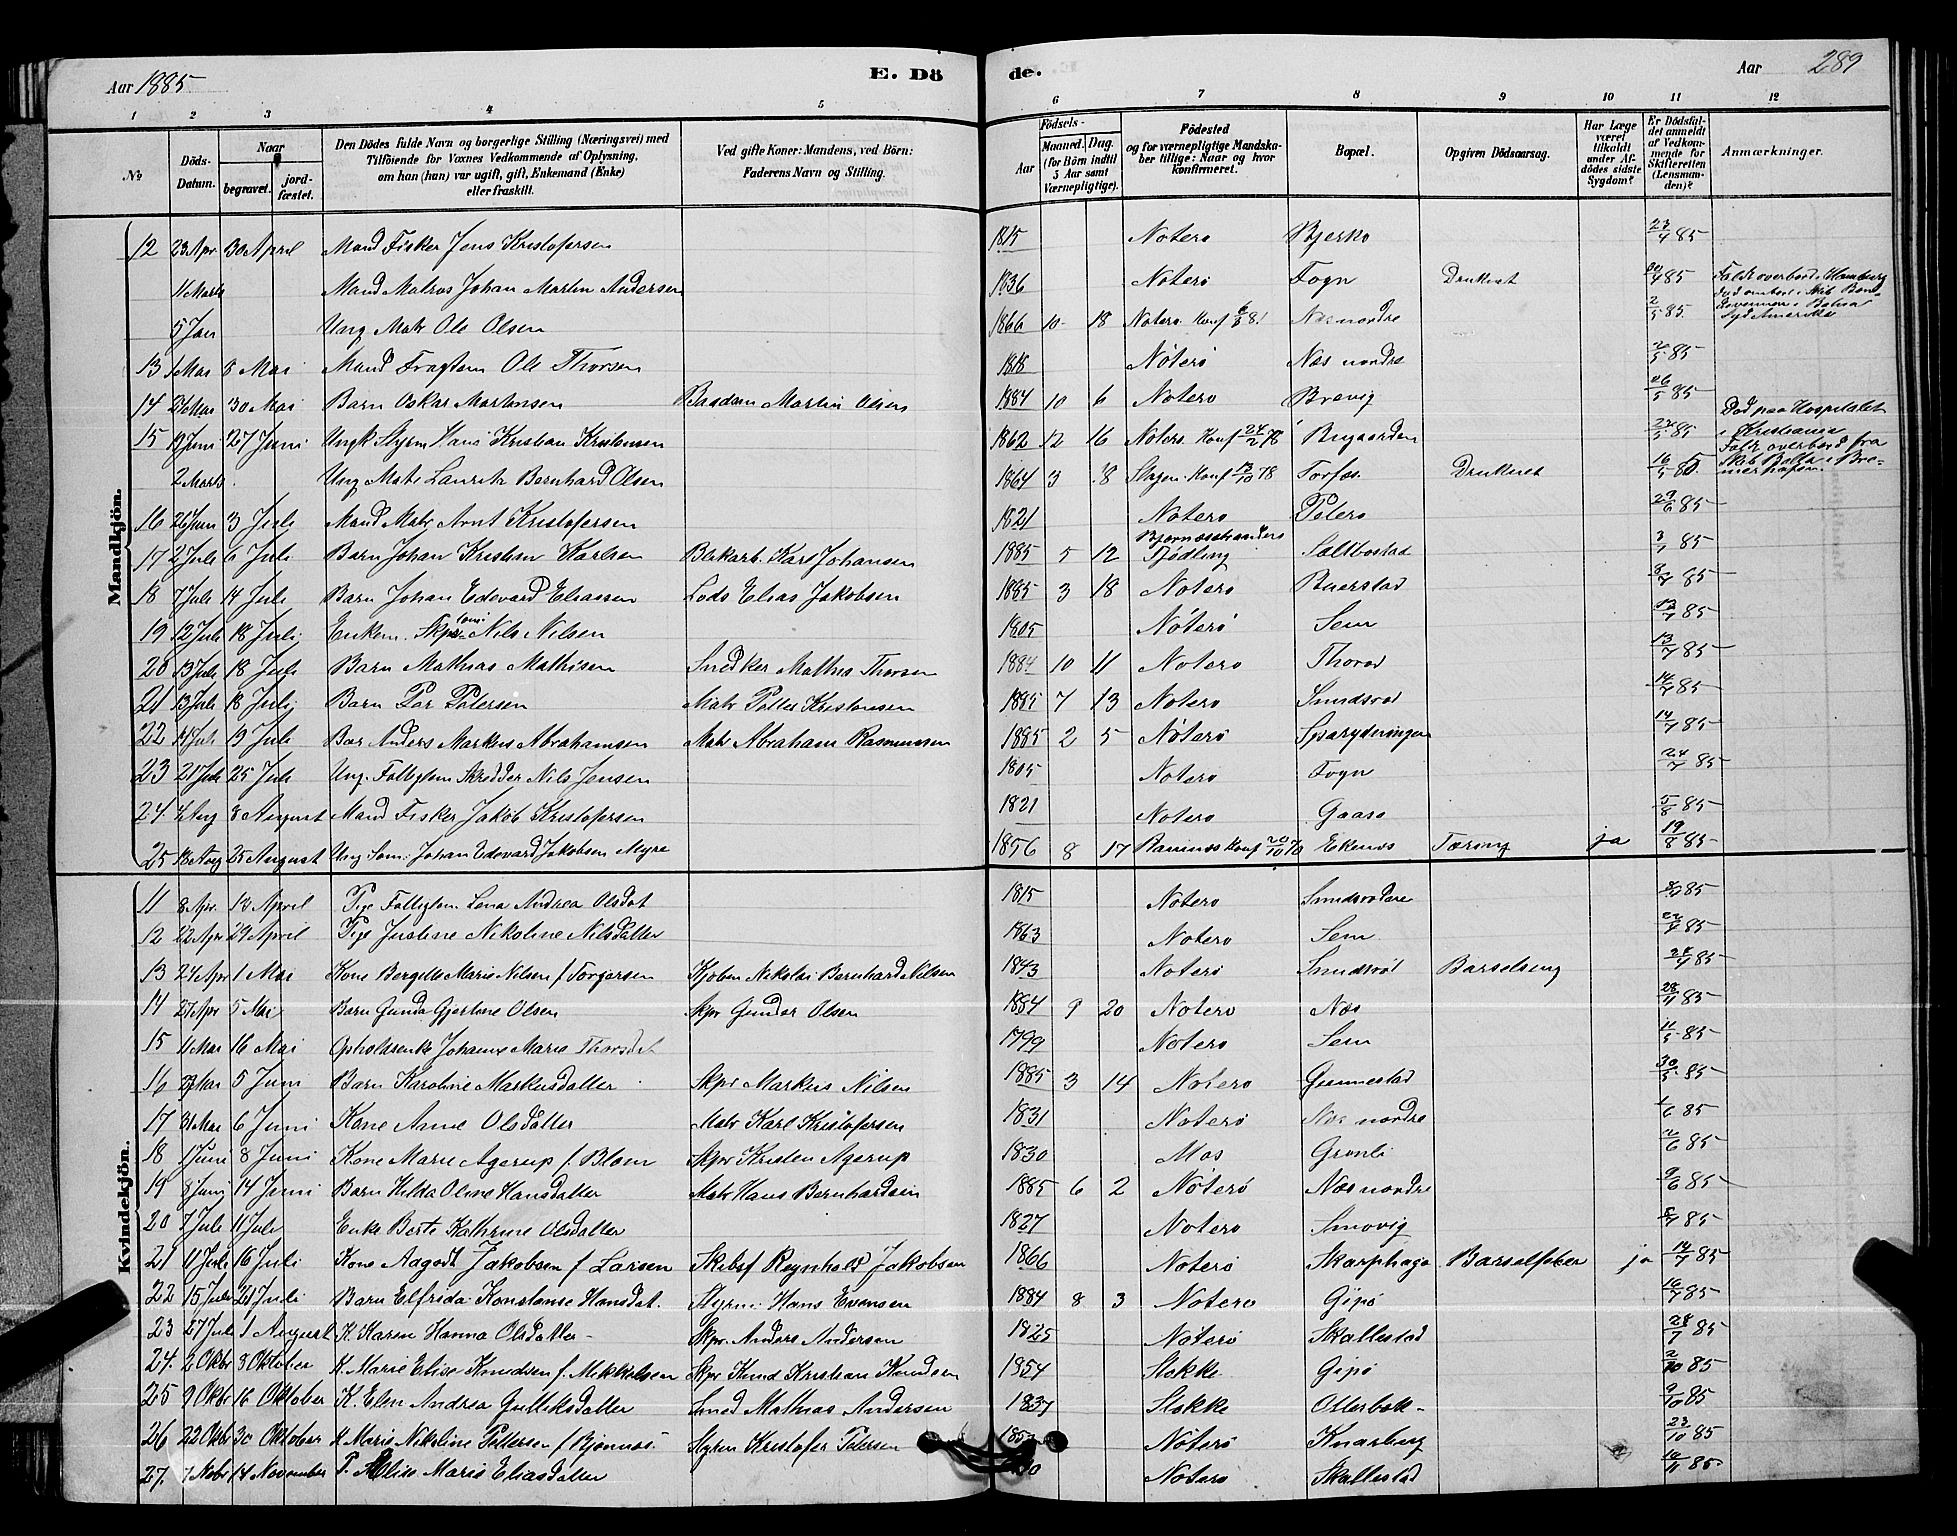 Aar 1885 E. Dö de. Aar 289
1 2 3 4 5 6 7 8 9 10 11 12
No Döds-Datum. Naar begravet. jordfæstet. Den Dödes fulde Navn og borgerlige Stilling (Næringsvei) med Tilföiende for Voxnes Vedkommende af Oplysning, om han (hun) var ugift, gift, Enkemand (Enke) eller fraskilt. Ved gifte Koner: Mandens, ved Börn: Faderens Navn og Stilling. Födsels- Aar Maaned. Dag. (for Börn indtil 5 Aar samt Værnepligtige). Födested og for værnepligtige Mandskaber tillige: Naar og hvor konfirmeret. Bopæl. Opgiven Dödsaarsag. Har Læge været tilkaldt under Afdödes sidste Sygdom? Er Dödsfaldet anmeldt af Vedkommende for Skifteretten (Lensmanden)? Anmærkninger.
Mandkjön.
12 23 Apr 30 April Mand Fisker Jens Kristofersen 1815 Nøterø Bjerkø 23/4 85
11 Marts Mand Matros Johan Martin Andersen 1836 Nøterø Fogn Druknet /4 85 Faldt overbord i Hamburg
5 Jan Ung Matr Ole Olsen 1866 10 18 Nøterø Konf Næs nordre 2/5 85 Syd Amerika
13 1 Mai 8 Mai Mand Fragtem Ole Thorsen 1818 Nøterø Næs nordre 2/5 85
14 26 Mai 30 Mai Barn Oskar Martinsen Baadsm Martin Olsen 1884 10 6 Nøterø Brevig 26/5 85
15 19 Juni 27 Juni Ungk Styrm Hans Kristian Kristensen 1862 12 16 Nøterø Konf 24/2 78 Bugaarden 24/5 85 Død paa Hospitalet i Kristiania
2 Marts Ung Matr Lauritz Bernhard Olsen 1864 3 8 Slagen Konf 13/10 78 Torfæs Druknet 16/5 85 Faldt overbord fra Skib
16 26 Juni 3 Juli Mand Matr Arnt Kristofersen 1821 Nøterø Peterø 29/6 85
17 2 Juli 6 Juli Barn Johan Kristian Karlsen Blikarb. Karl Johansen 1885 5 12 Tjødling Saltbostad 3/7 85
18 7 Juli 14 Juli Barn Johan Edevard Eliassen Lods Elias Jakobsen 1885 3 18 Nøterø Buerstad 8/7 85
19 12 Juli 18 Juli Enkem. Skpr Nils Nilsen 1805 Nøterø Sem 13/7 85
20 13 Juli 18 Juli Barn Mathias Mathisen Snedker Mathis Thorsen 1884 10 11 Nøterø Thorød 13/7 85
21 13 Juli 18 Juli Barn Par Petersen Matr Petter Kristensen 1885 7 13 Nøterø Smidsrød 14/7 85
22 14 Juli 19 Juli Bar Anders Markus Abrahamsen Matr Abraham Rasmussen 1885 2 5 Nøterø 14/7 85
23 21 Juli 25 Juli Ung. Fattiglem Skrædder Nils Jensen 1805 Nøterø Fogn 24/7 85
24. 4 Aug 8 August Mand Fisker Jakob Kristofersen 1821 Nøterø Gaasø 5/8 85
25 18 Aug 25 August Ung Søm: Johan Edevard Jakobsen Myre 1856 8 17 Ramnæs Konf Ekenæs Tæring ja 19/8 85
Kvindekjön.
11 8 Apr. 13 April Pige Fattiglem Lena Andrea Olsdat 1815 Nøterø 85
12 22 Apr 29 April Pige Justine Nikoline Nilsdatter 1863 Nøterø Sem 24/4 85
13 24 Apr 1 Mai Kone Bergitte Marie Nilsen f Torgersen Kjøbm Nikolai Bernhard Nilsen 1843 Nøterø Smidsrød Barselseng 24/4 85
14 27 Apr 5 Mai Barn Gunda Gjertine Olsen Skpr Gunder Olsen 1884 9 20 Nøterø Næs 28/4 85
15 11 Mai 16 Mai Opholdsenke Johanne Marie Thorsdat 1799 Nøterø Sem 11/5 85
16 29 Mai 5 Juni Barn Karoline Markusdatter Skpr Markus Nilsen 1885 3 14 Nøterø Gunnestad 30/5 85
17 31 Mai 6 Juni Kone Anne Olsdatter Matr Karl Kristofersen 1831 Nøterø Næs nordre 1/6 85
18 1 Juni 8 Juni Kone Marie Agerup f. Bloen Skpr Kristen Agerup 1830 Mos Grønli 2/6 85
19 8 Juni 14 Juni Barn Hilda Oline Hansdatter Matr Hans Bernhardsen 1885 6 2 Nøterø Næs nordre 9/6 85
20 7 Juli 11 Juli Enke Berte Kathrine Olsdatter 1827 Nøterø Smovig 8/7 85
21 11 Juli 16 Juli Kone Aagodt Jakobsen f Larsen Skibsf Reynhold Jakobsen 1866 Nøterø Skarphaga Barselfeber ja 14/7 85
22 15 Juli 20 Juli Barn Elfrida Konstanse Hansdat. Styrm: Hans Evensen 1884 8 3 Nøterø Gipø 16/7 85
23 27 Juli 1 August K. Karen Hanna Olsdatter Skpr. Anders Andersen 1825 Nøterø Skallestad 28/7 85
24. 2 Oktbr 8 Oktober K. Marie Elise Knudsen f. Mikkelsen Skpr Knud Kristian Knudsen 1854 Stokke Gipø 2/10 85
25 9 Oktbr 16 Oktober K. Elen Andrea Gulliksdatter Smed Mathias Andersen 1837 Stokke Otterbæk 9/10 85
26 22 Oktbr 30 Oktober K Marie Nikoline Pettersen f Bjønnes Styrm Kristofer Petersen Nøterø Knarberg 23/10 85
27. 7 Novbr 14 November P. Elise Marie Eliasdatter Nøterø Skallestad 10/11 85